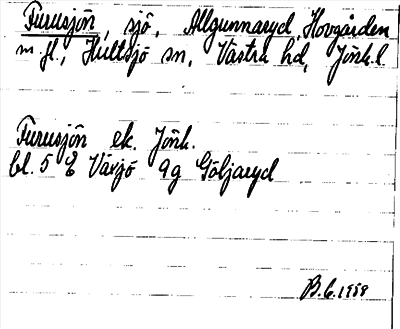 Furusjön, sjö, Allgunnaryd, Hovgården
m.fl., Hultsjö sn, Västra hd, Jönk.l.
Furusjön ek. Jönk.
bl. 5 E Växjö 9g Göljaryd
B.G. 1959